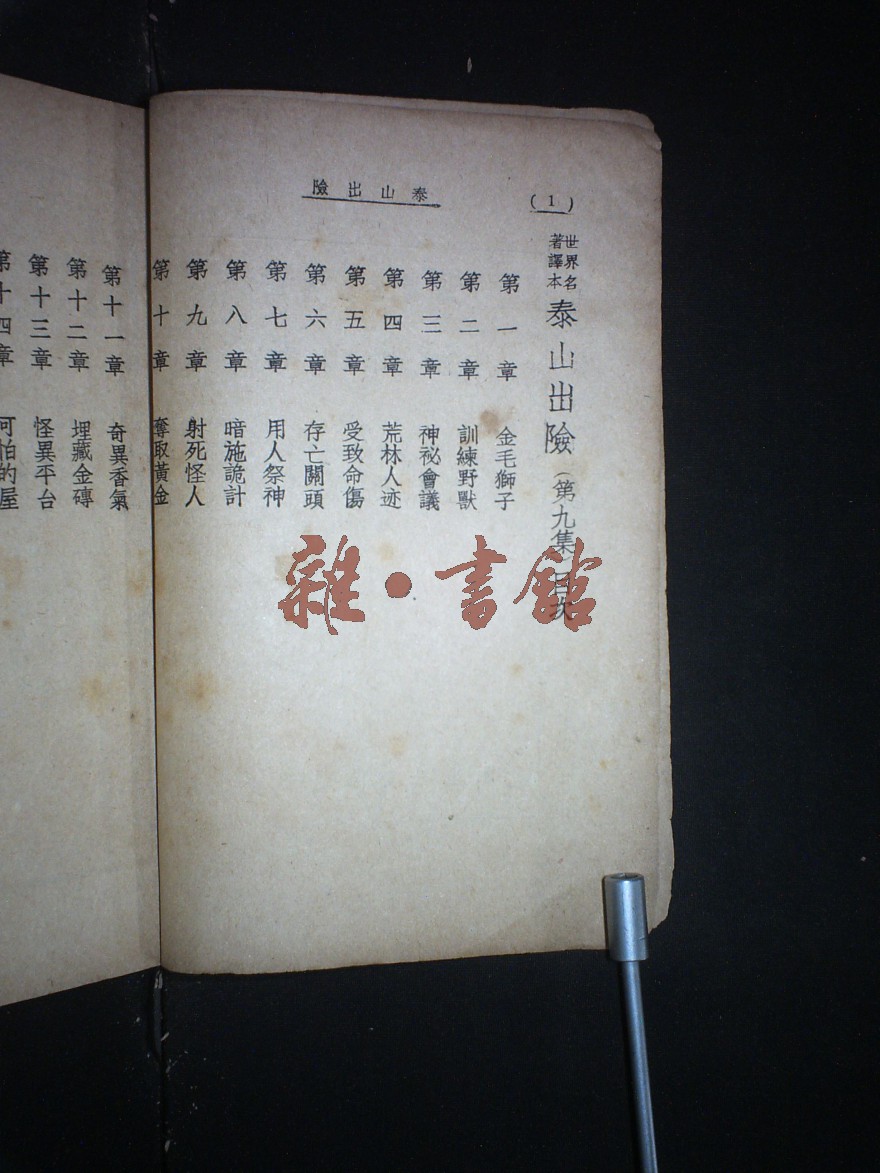 泰山出險
(1)
世界名著譯本 泰山出險 (第九集) 目次
第一章 金毛獅子
第二章 訓練野獸
第三章 神祕會議
第四章 荒林人迹
第五章 受致命傷
第六章 存亡關頭
第七章 用人祭神
第八章 暗施詭計
第九章 射死怪人
第十章 奪取黃金
第十一章 奇異香氣
第十二章 埋藏金磚
第十三章 怪異平台
第十四章 可怕的屋
雜·書館